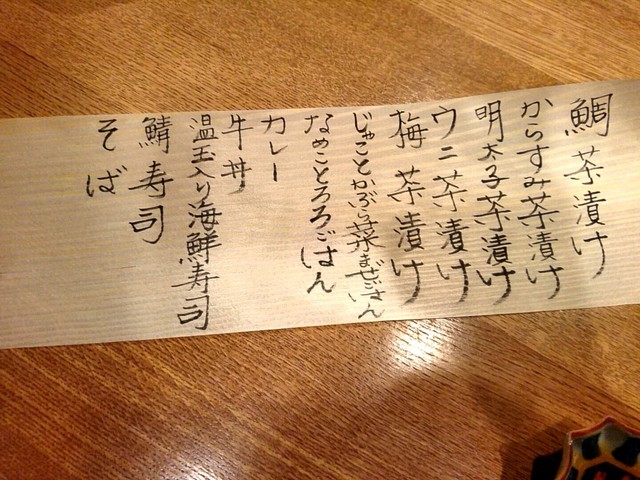 鯛茶漬け
からすみ茶漬け
明太子茶漬け
ウニ茶漬け
梅茶漬け
じゃことかぶら菜まぜごはん
なめことろろごはん
カレー
牛丼
温玉入り海鮮寿司
鯖寿司
そば